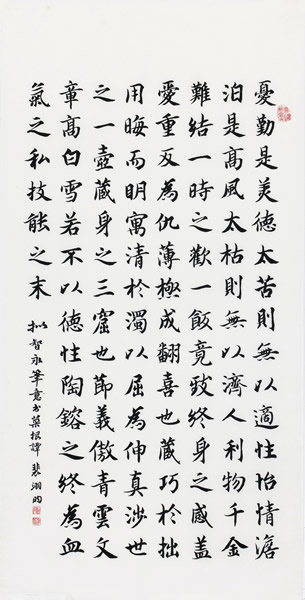 憂勤是美德太苦則無以適性怡情澹
泊是高風太枯則無以濟人利物千金
難結一時之歡一飯竟致終身之感蓋
愛重反為仇薄極成翻喜也藏巧於拙
用晦而明寓清於濁以屈為伸真涉世
之一壺藏身之三窟也節義傲青雲文
章高白雪若不以德性陶鎔之終為血
氣之私技能之末
拟智永筆意书菜根譚 裴